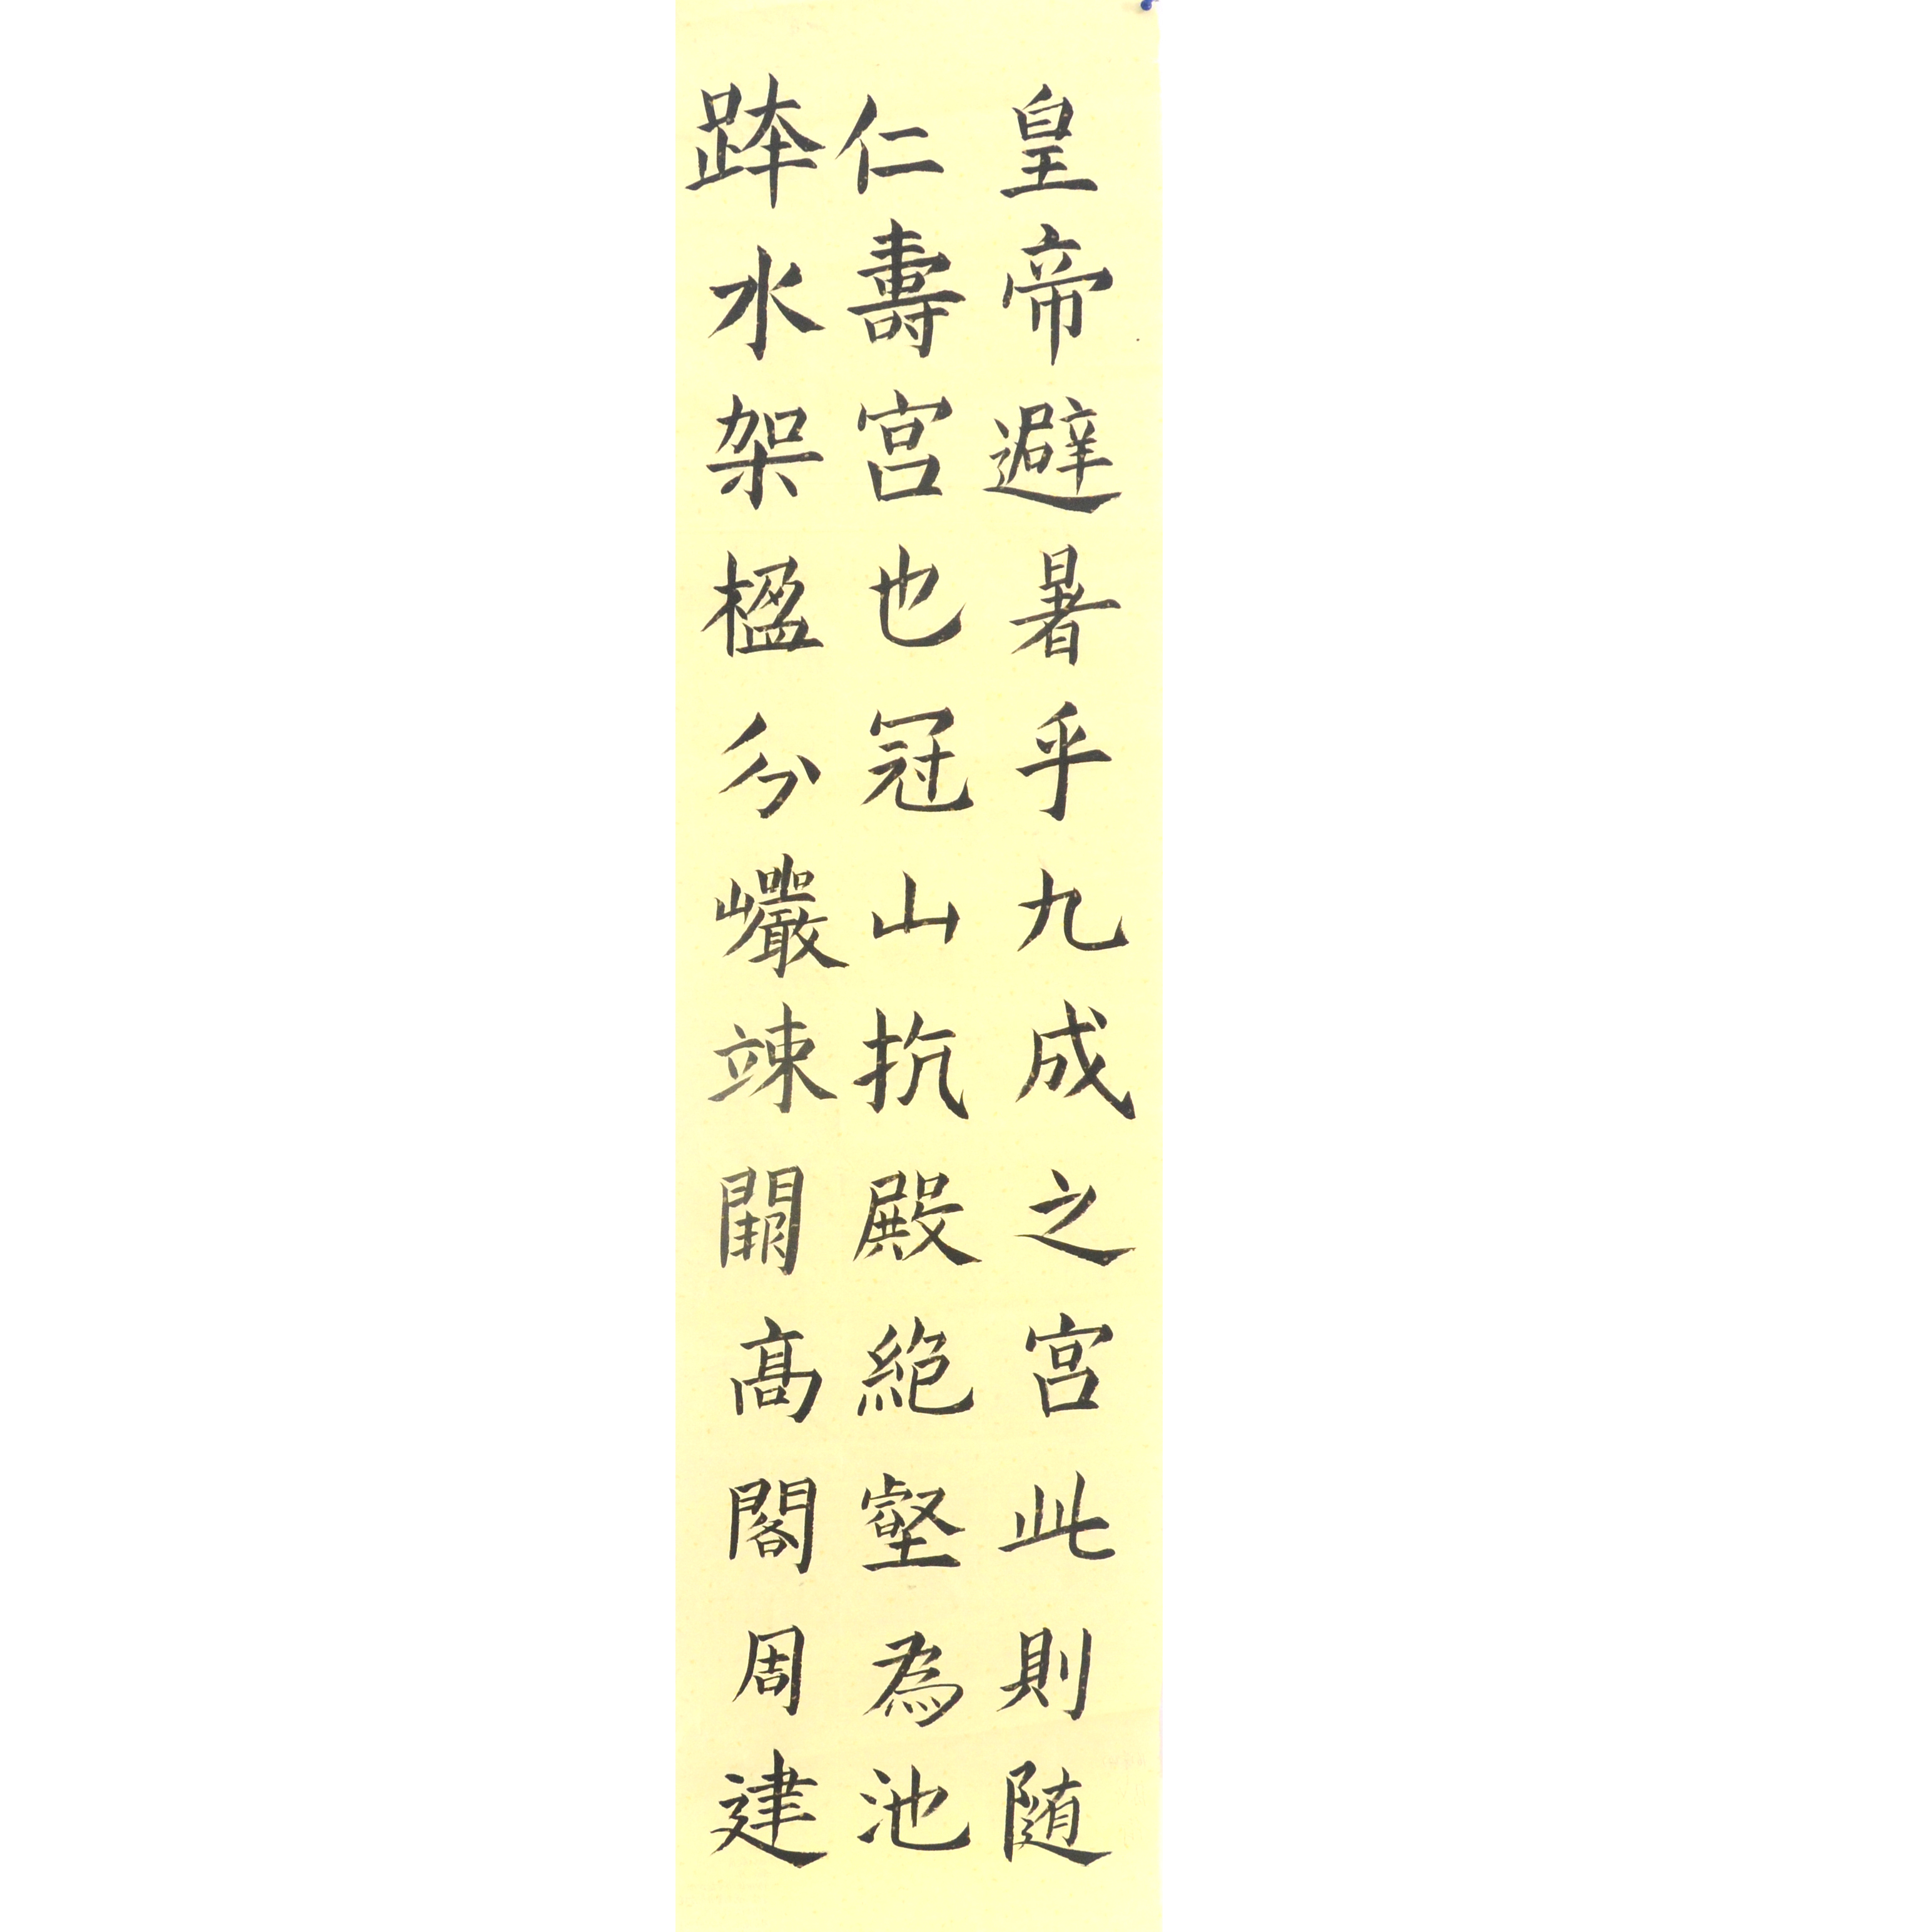 皇帝避暑乎九成之宫此則随
仁壽宫也冠山抗殿絶壑為池
跨水架楹分巖竦闕高閣周建